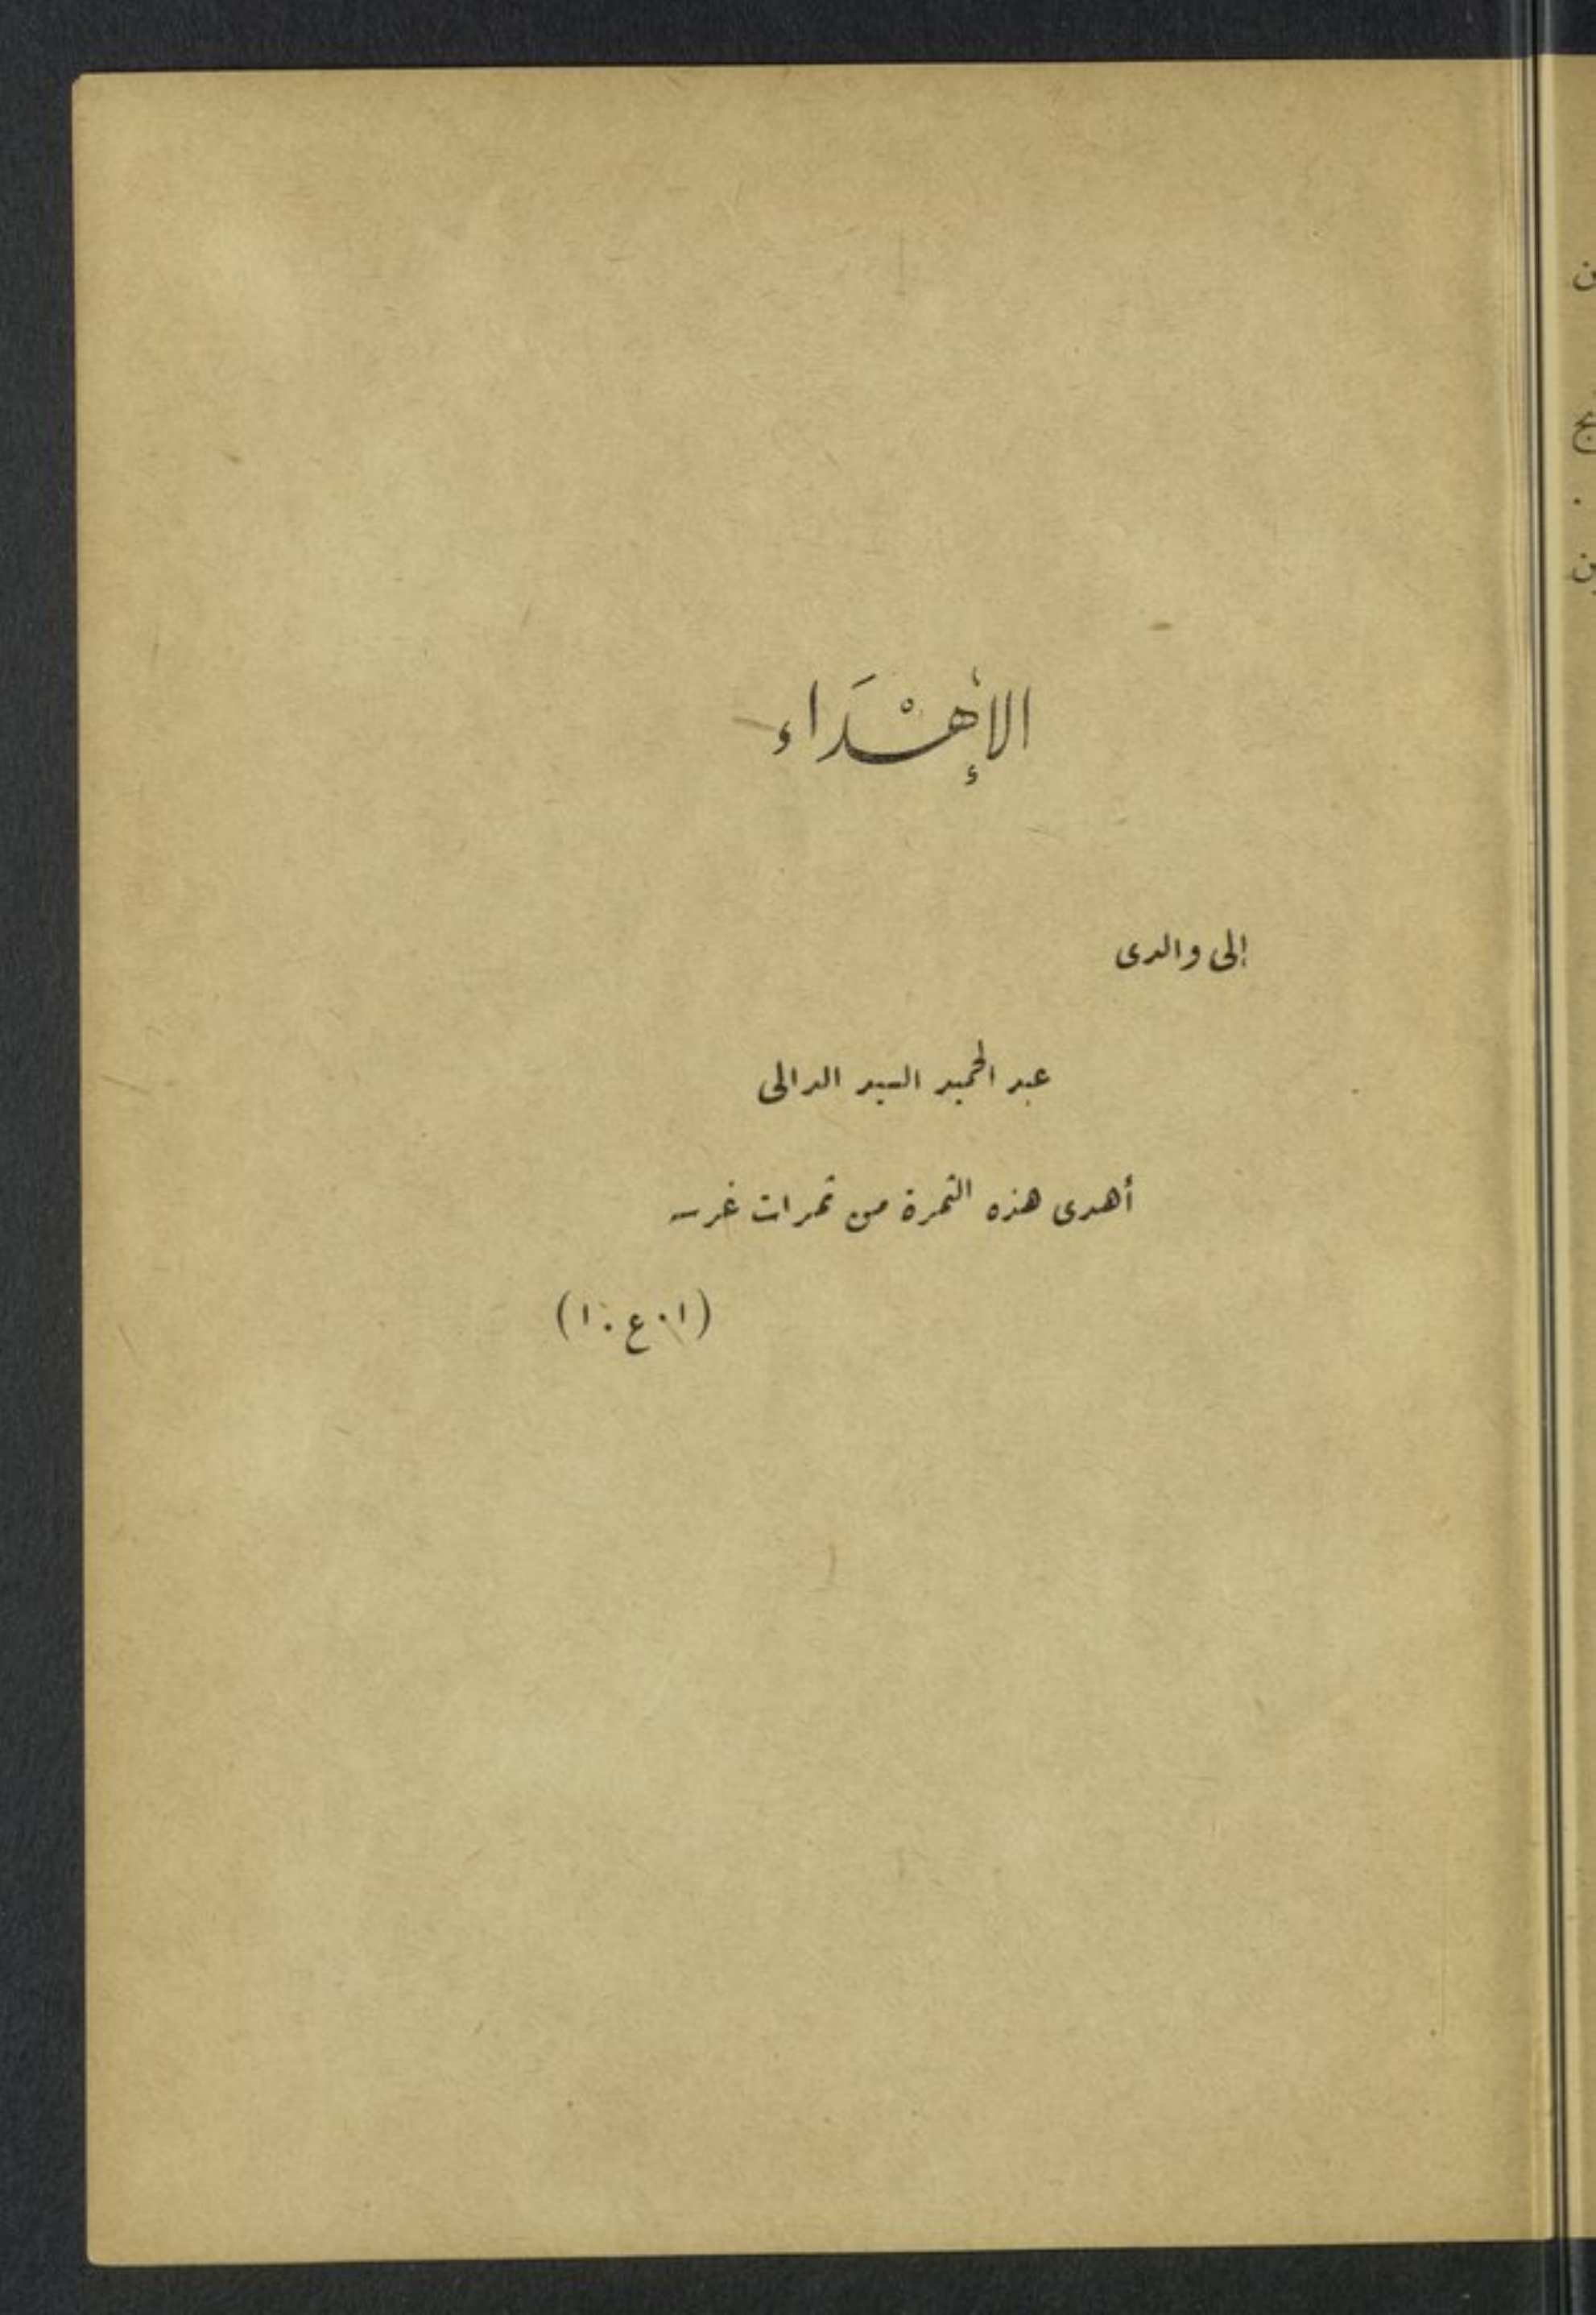 الإِهْدَاء
إلى والدى
عبد الحميد السيد الدالى
أهدى هذه الثمرة من ثمرات غرسه
(ا.ع.ا)